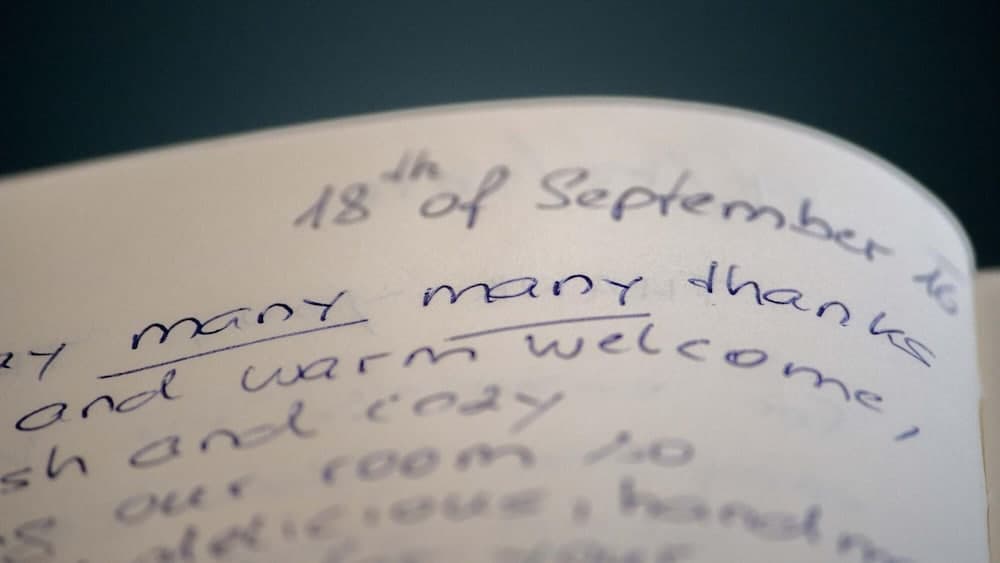 18th of September 16
many many thanks
and warm welcome,
sh and cozy
our room so
delicious, hand